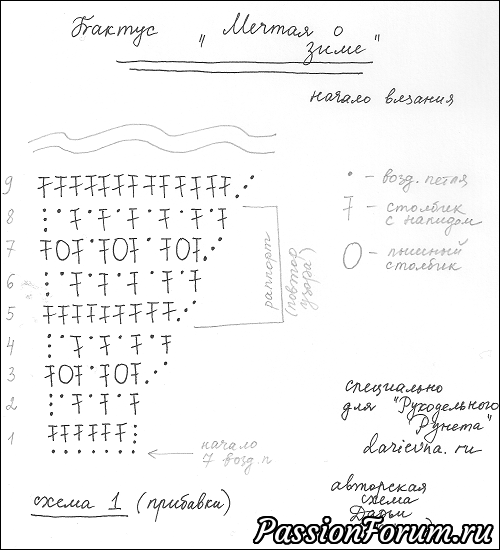 Бактус „Мечтая о
зиме"
начало вязания
9
8
7
6
5
4
3
2
1
раппорт
(повтор
узора)
• - возд. петля
- столбик
с накидом
- пышный
столбик
начало
7 возд.п
специально
для "Рукодельного
Рунета"
darievna.ru
схема 1 (прибавки)
авторская
схема
Дарьи
PassionForum.ru